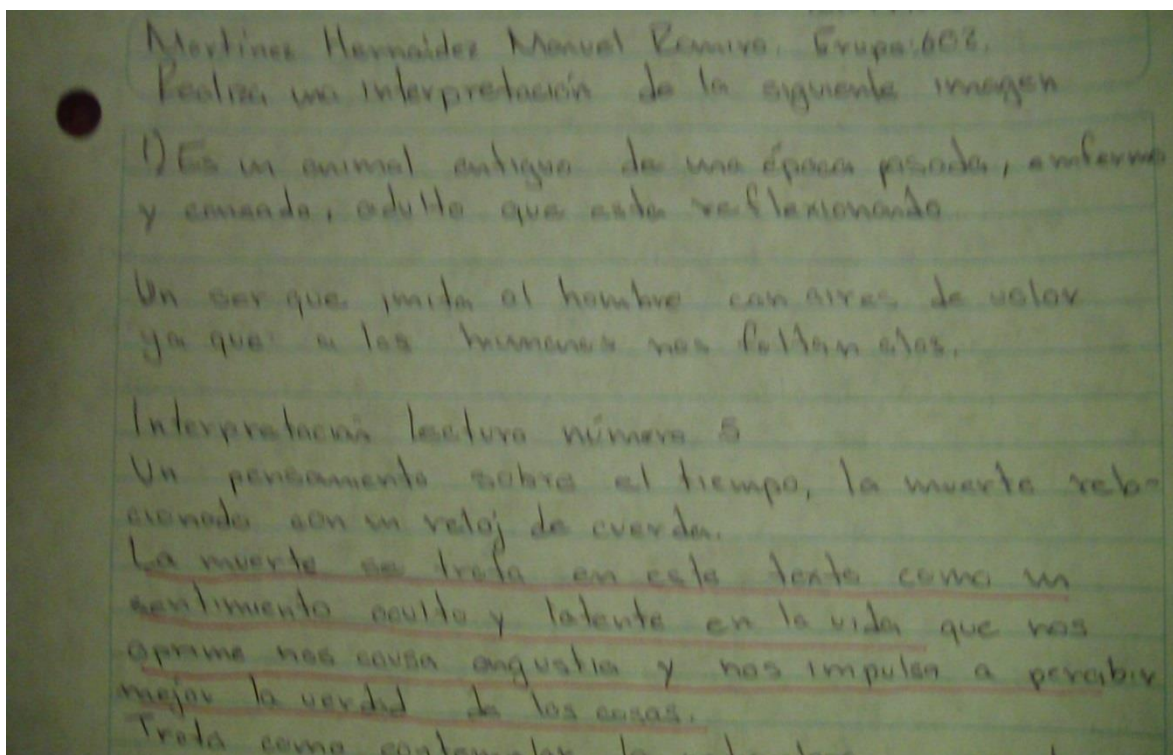 Martínez Hernaídez Manuel Ramiro. Grupo:603.
Realiza una interpretación de la siguiente imagen
1) Es un animal antiguo de una época pasada, enfermo
y cansado, adulto que esta reflexionando
Un ser que imita al hombre con aires de valor
ya que a los humanos nos faltan alas.
Interpretación lectura número 5
Un pensamiento sobre el tiempo, la muerte rela-
cionado con un reloj de cuerda.
La muerte se trata en este texto como un
sentimiento oculto y latente en la vida que nos
oprime nos causa angustia y nos impulsa a percibir
mejor la verdad de las cosas.
Trata como contemplar la